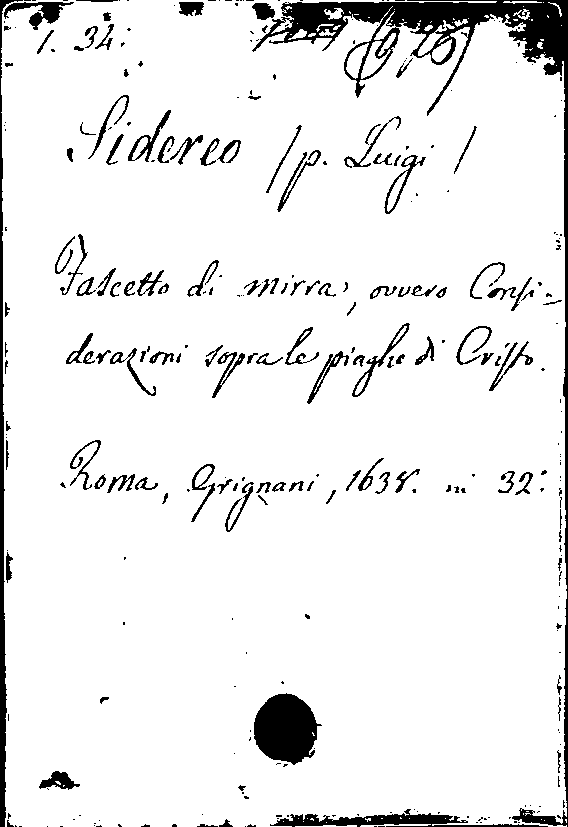 1. 34:
Sidereo / p. Luigi /
Fascetto di mirra, ovvero Consi-
derazioni sopra le piaghe di Cristo.
Roma, Grignani, 1638. in 32: